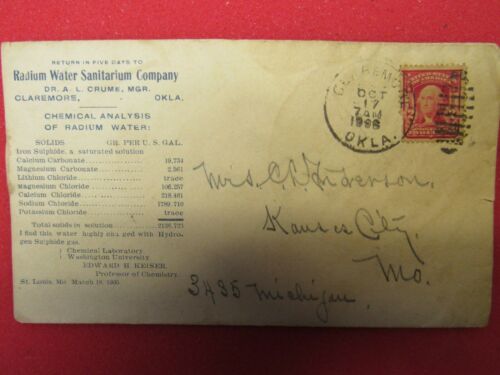 RETURN IN FIVE DAYS TO
Radium Water Sanitarium Company
DR. A. L. CRUME, MGR.
CLAREMORE, OKLA.
CHEMICAL ANALYSIS
OF RADIUM WATER:
SOLIDS GR. PER U. S. GAL.
Iron Sulphide, a saturated solution
Calcium Carbonate 19,734
Magnesium Carbonate 2,561
Lithium Chloride trace
Magnesium Chloride 106,257
Calcium Chloride 218,461
Sodium Chloride 1789,710
Potassium Chloride trace
Total solids in solution 2136,723
I find this water highly charged with Hydro-
gen Sulphide gas.
Chemical Laboratory
Washington University
EDWARD H. KEISER,
Professor of Chemistry.
St. Louis, Mo March 18,
CLAREMORE
OCT
17
7 AM
OKLA.
Mrs. C. Anderson.
Kansas City.
Mo.
3435 Michigan.